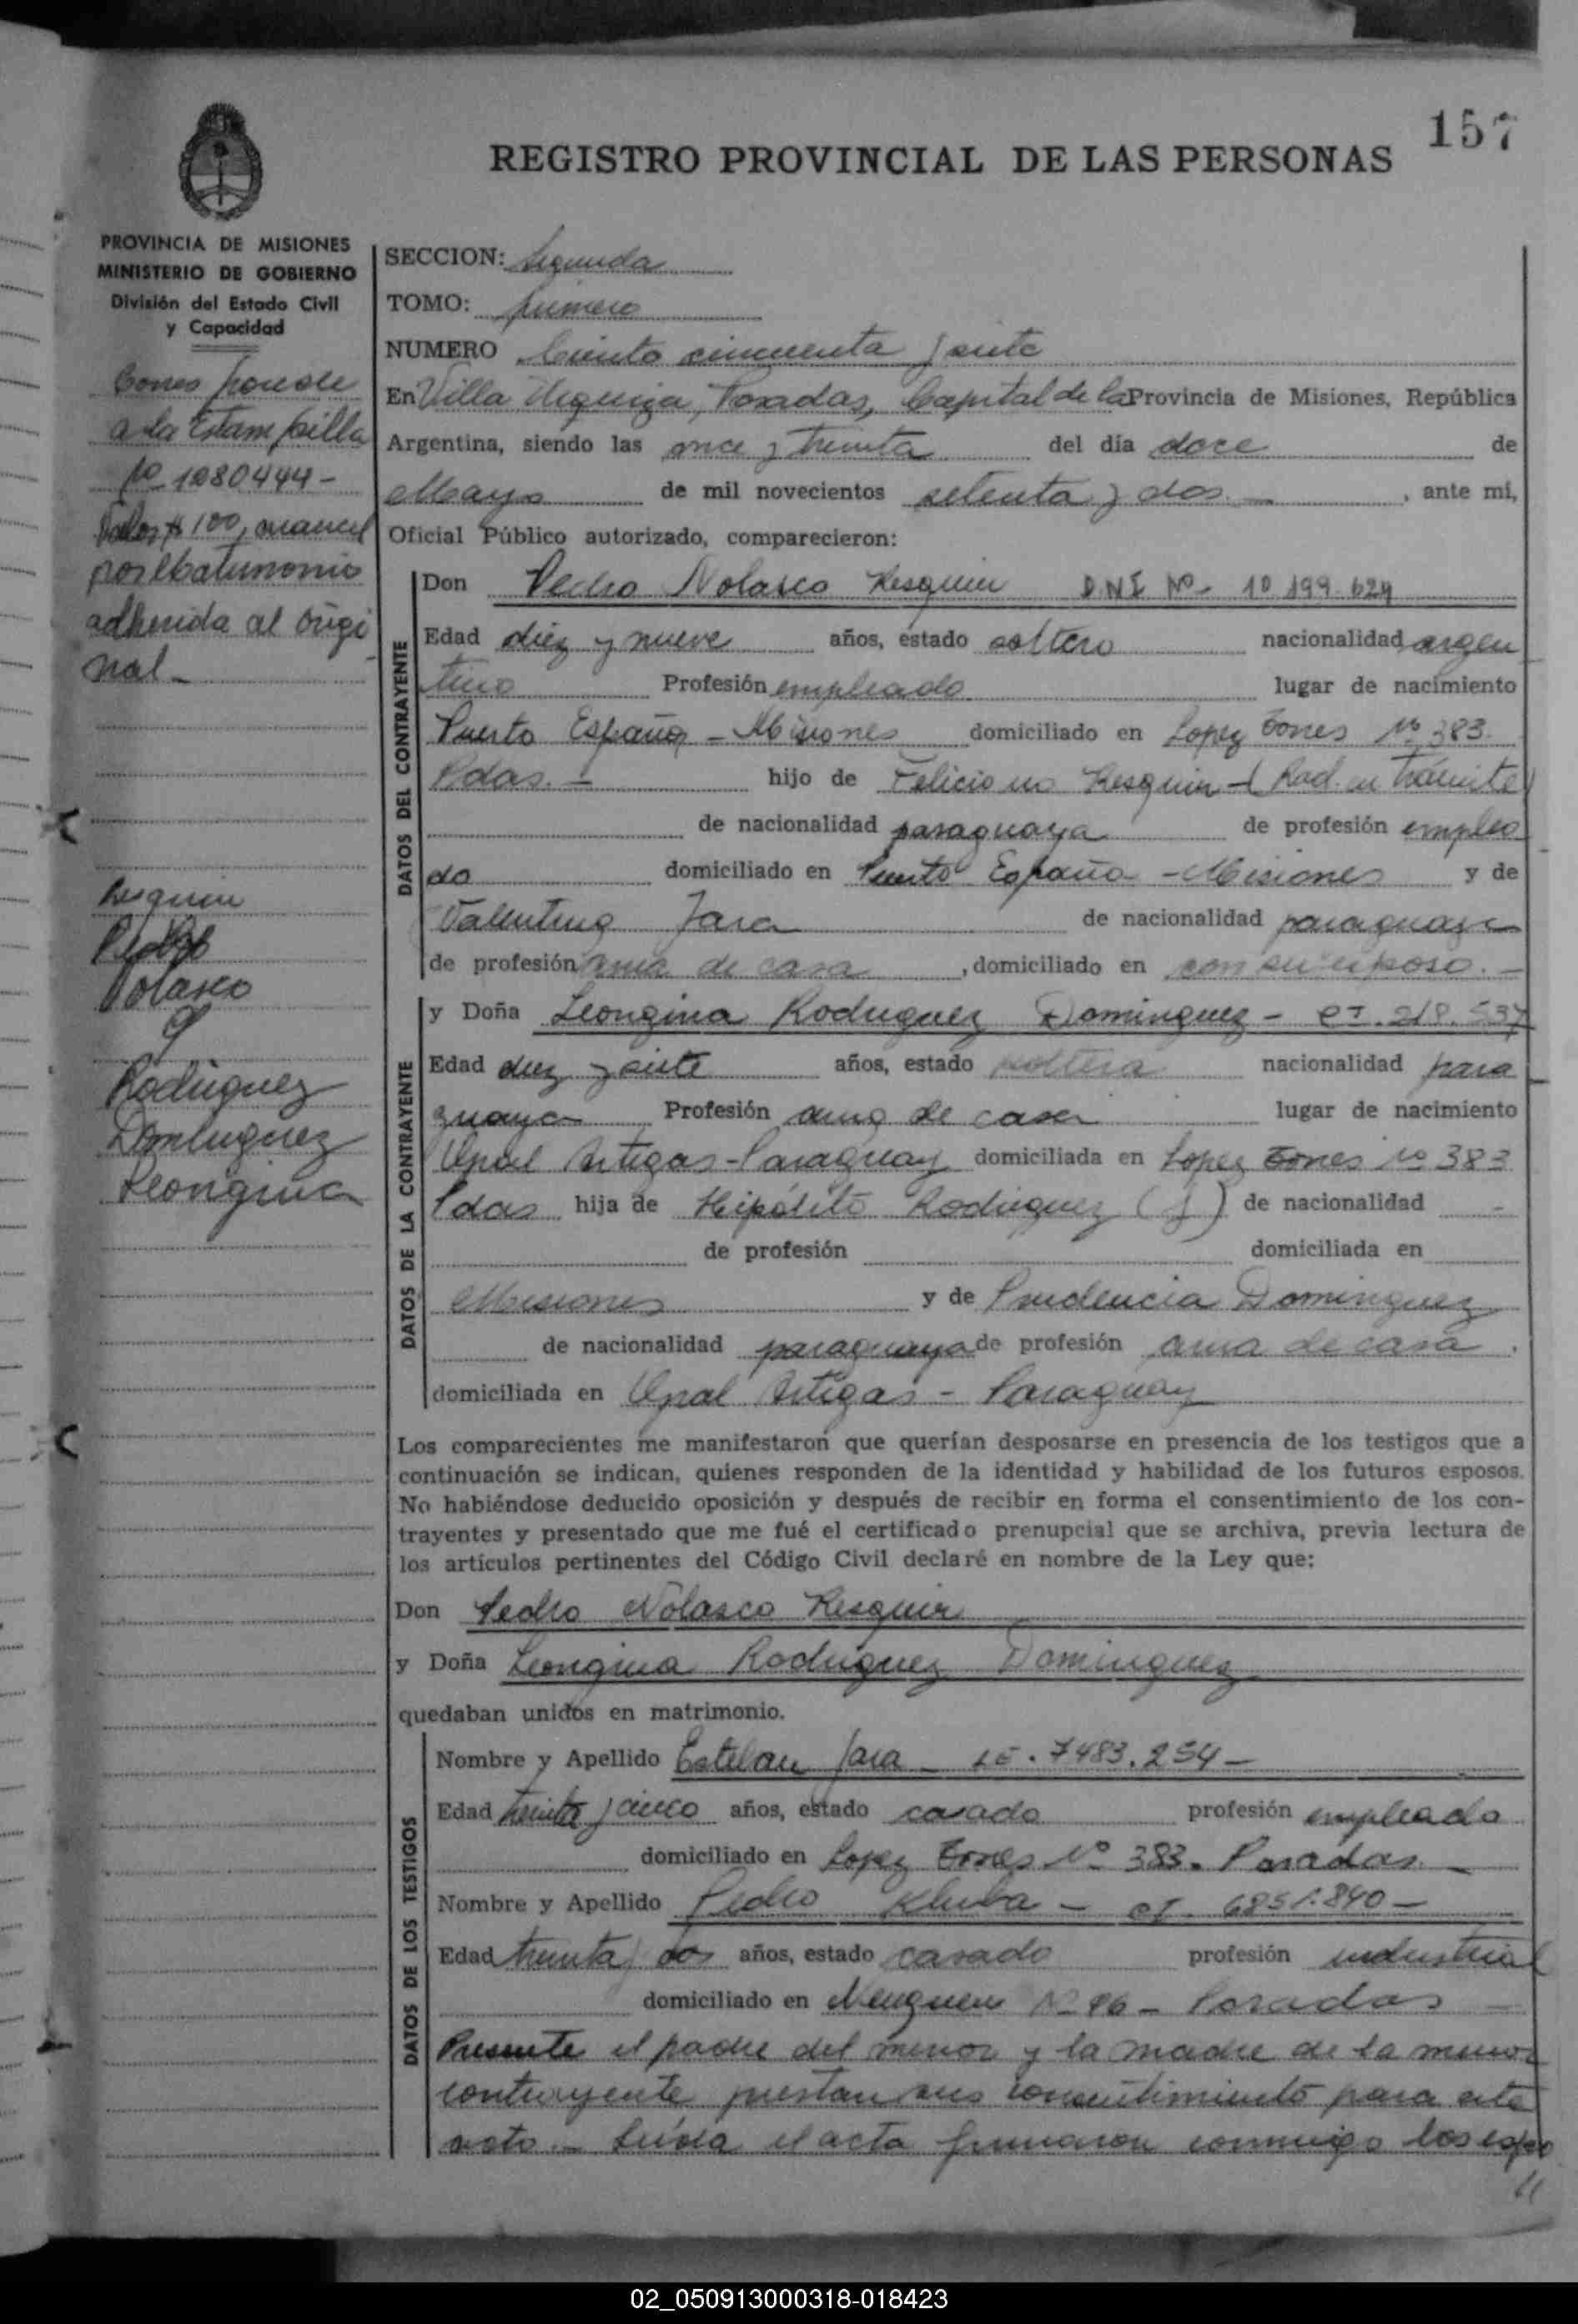 157
REGISTRO PROVINCIAL DE LAS PERSONAS
PROVINCIA DE MISIONES
MINISTERIO DE GOBIERNO
División del Estado Civil
y Capacidad
Corresponde
a la Estampilla
No 1080444-
Valor $ 100, arancel
por Matrimonio
adherida al origi
nal-
Resquin
Pedro
Nolasco
y
Rodriguez
Dominguez
Leongina
SECCION: Segunda
TOMO: primero
NUMERO Ciento cincuenta y siete
En Villa Urquiza, Posadas, Capital de la Provincia de Misiones, República
Argentina, siendo las once y treinta del día doce de
Mayo de mil novecientos setenta y dos.- , ante mi,
Oficial Público autorizado, comparecieron:
DATOS DEL CONTRAYENTE
Don Pedro Nolasco Resquin D.N.I Nº- 10.199.624
Edad diez y nueve años, estado soltero nacionalidad argen
tino Profesión empleado lugar de nacimiento
Puerto España - Misiones domiciliado en Lopez Torres Nº 383.
Pdas.- hijo de Feliciano Resquin - (Rad. en Trámite)
de nacionalidad paraguaya de profesión emplea
do domiciliado en Puerto España - Misiones y de
Valentina Jara de nacionalidad paraguaya
de profesión ama de casa , domiciliado en con su esposo.-
DATOS DE LA CONTRAYENTE
y Doña Leongina Rodriguez Dominguez - CI. 218.537
Edad diez y siete años, estado soltera nacionalidad para
guaya Profesión ama de casa lugar de nacimiento
Gral Artigas - Paraguay domiciliada en Lopez Torres No 383
Pdas hija de Hipólito Rodriguez (f) de nacionalidad -
de profesión domiciliada en
Misiones y de Prudencia Dominguez
de nacionalidad paraguaya de profesión ama de casa.
domiciliada en Gral Artigas - Paraguay
Los comparecientes me manifestaron que querían desposarse en presencia de los testigos que a
continuación se indican, quienes responden de la identidad y habilidad de los futuros esposos.
No habiéndose deducido oposición y después de recibir en forma el consentimiento de los con-
trayentes y presentado que me fué el certificado prenupcial que se archiva, previa lectura de
los artículos pertinentes del Código Civil declaré en nombre de la Ley que:
Don Pedro Nolasco Resquin
y Doña Leongina Rodriguez Dominguez
quedaban unidos en matrimonio.
DATOS DE LOS TESTIGOS
Nombre y Apellido Esteban Jara - LE. 7483.254-
Edad treinta y cinco años, estado casado profesión empleado
domiciliado en Lopez Torres Nº 383. Posadas.-
Nombre y Apellido Pedro Kluba - CI. 6851.840-
Edad treinta y dos años, estado casado profesión industrial
domiciliado en Neuquen Nº 86 - Posadas -
Presente el padre del menor y la madre de la menor
contrayente prestan sus consentimiento para este
acto.- Leída el acta firmaron conmigo los espo
//
02_050913000318-018423